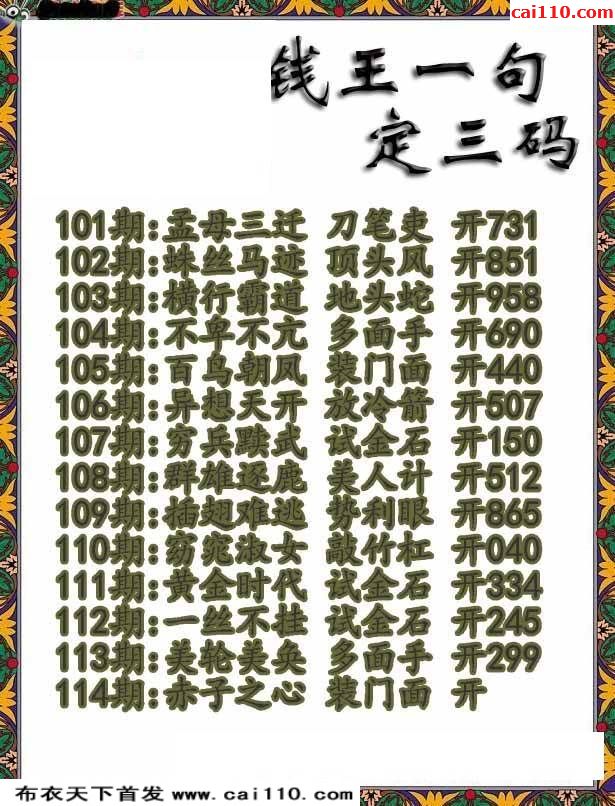 cai110.com
钱王一句
定三码
101期:孟母三迁 刀笔吏 开731
102期:蛛丝马迹 顶头风 开851
103期:横行霸道 地头蛇 开958
104期:不卑不亢 多面手 开690
105期:百鸟朝凤 装门面 开440
106期:异想天开 放冷箭 开507
107期:穷兵黩武 试金石 开150
108期:群雄逐鹿 美人计 开512
109期:插翅难逃 势利眼 开865
110期:窈窕淑女 敲竹杠 开040
111期:黄金时代 试金石 开334
112期:一丝不挂 试金石 开245
113期:美轮美奂 多面手 开299
114期:赤子之心 装门面 开
布衣天下首发 www.cai110.com